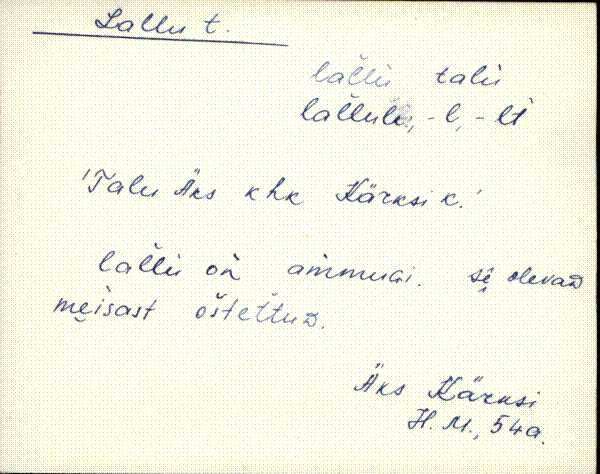 Lallu t.
lal̆l̆u talu
lal̆l̆ule, -l, -lt
'Talu Äks khk Kärksi k.'
lal̆l̆u on ammuai. se̬ olevad
me̬isast ostettud.
Äks Kärksi
H. M., 54a.